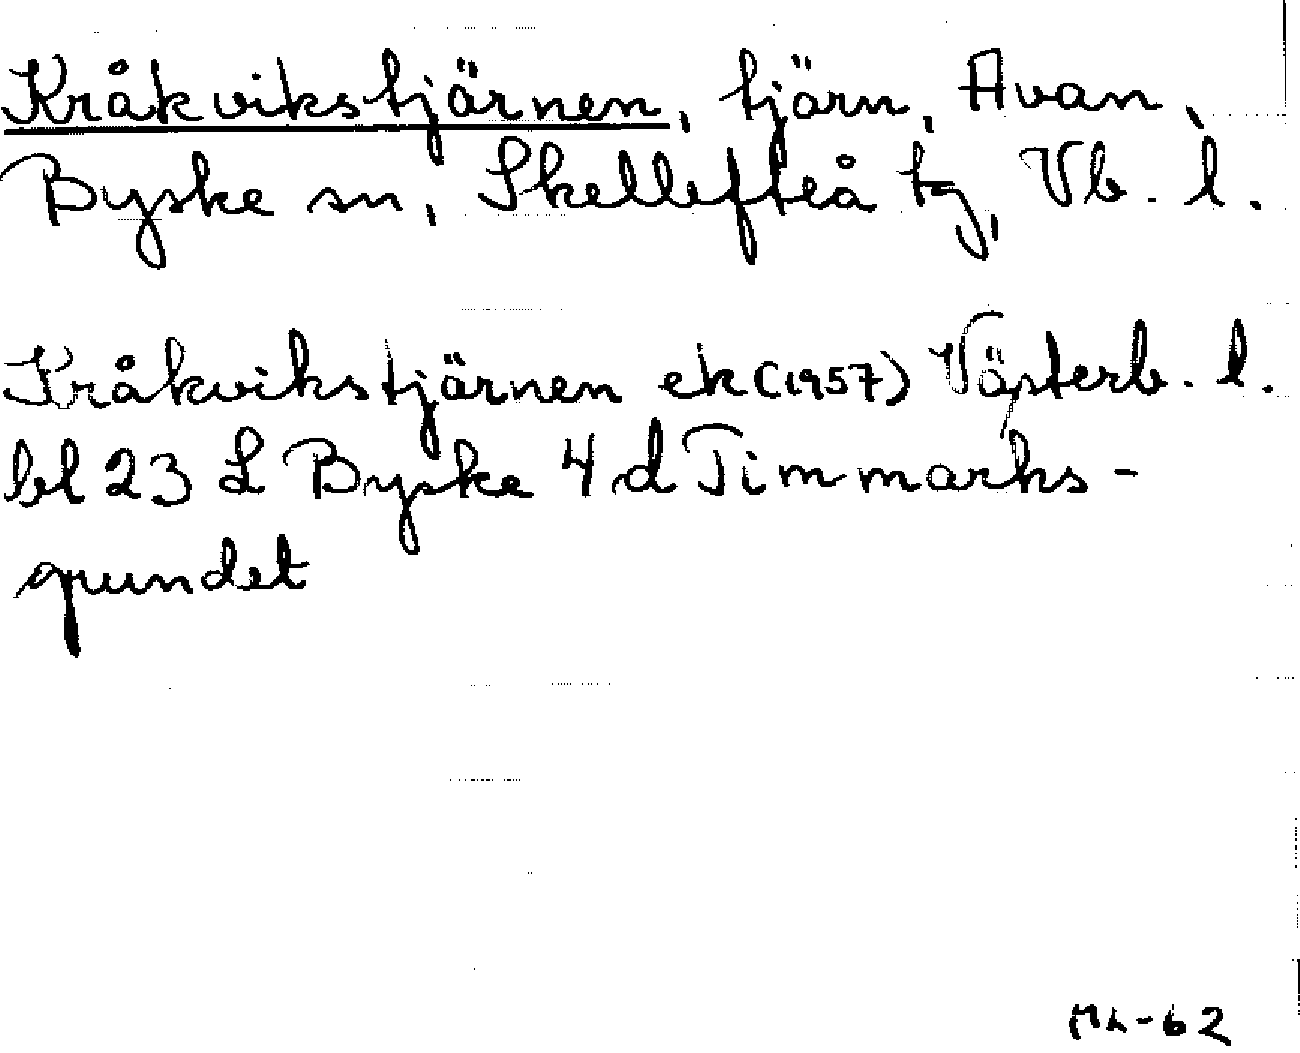 Kråkvikstjärnen, tjärn, Avan,
Byske sn, Skellefteå tg, Vb. l.
Kråkvikstjärnen ek (1957) Västerb. l.
bl 23 L Byske 4 d Timmarks-
grundet
-62